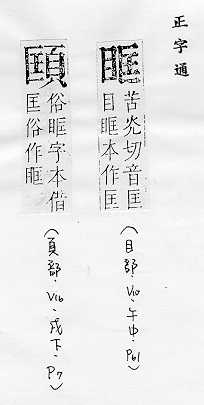 正字通
眶
苦灮切音匡
目眶本作匡
(目部·V10·午中·P61)
俗眶字本借
匡俗作眶
(頁部·V16·戌下·P7)